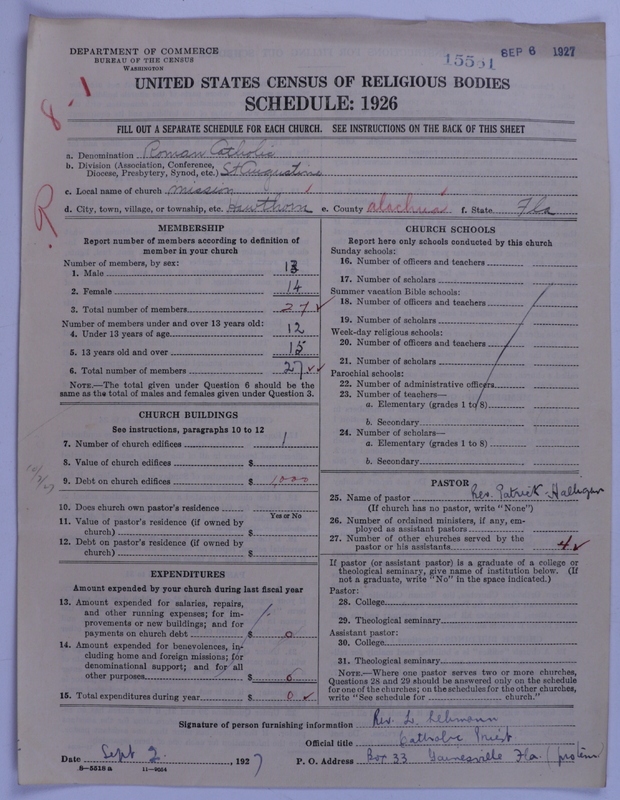 DEPARTMENT OF COMMERCE
BUREAU OF THE CENSUS
WASHINGTON
15551 SEP 6 1927
8-1
R
UNITED STATES CENSUS OF RELIGIOUS BODIES
SCHEDULE: 1926
FILL OUT A SEPARATE SCHEDULE FOR EACH CHURCH. SEE INSTRUCTIONS ON THE BACK OF THIS SHEET
a. Denomination Roman Catholic
b. Division (Association, Conference,
Diocese, Presbytery, Synod, etc.) St Augustine
c. Local name of church mission
d. City, town, village, or township, etc. Hawthorn e. County Alachua f. State Fla
MEMBERSHIP
Report number of members according to definition of
member in your church
Number of members, by sex:
1. Male 13
2. Female 14
3. Total number of members 27
Number of members under and over 13 years old:
4. Under 13 years of age 12
5. 13 years old and over 15
6. Total number of members 27
NOTE.—The total given under Question 6 should be the
same as the total of males and females given under Question 3.
CHURCH BUILDINGS
See instructions, paragraphs 10 to 12
7. Number of church edifices 1
8. Value of church edifices $
9. Debt on church edifices $ 1000
10. Does church own pastor's residence
Yes or No
11. Value of pastor's residence (if owned by
church) $
12. Debt on pastor's residence (if owned by
church) $
EXPENDITURES
Amount expended by your church during last fiscal year
13. Amount expended for salaries, repairs,
and other running expenses; for im-
provements or new buildings; and for
payments on church debt $ 0
14. Amount expended for benevolences, in-
cluding home and foreign missions; for
denominational support; and for all
other purposes $ 0
15. Total expenditures during year $ 0
CHURCH SCHOOLS
Report here only schools conducted by this church
Sunday schools:
16. Number of officers and teachers
17. Number of scholars
Summer vacation Bible schools:
18. Number of officers and teachers
19. Number of scholars
Week-day religious schools:
20. Number of officers and teachers
21. Number of scholars
Parochial schools:
22. Number of administrative officers
23. Number of teachers—
a. Elementary (grades 1 to 8)
b. Secondary
24. Number of scholars—
a. Elementary (grades 1 to 8)
b. Secondary
PASTOR
25. Name of pastor Rev. Patrick Halligan
(If church has no pastor, write "None")
26. Number of ordained ministers, if any, em-
ployed as assistant pastors
27. Number of other churches served by the
pastor or his assistants 4
If pastor (or assistant pastor) is a graduate of a college or
theological seminary, give name of institution below. (If
not a graduate, write "No" in the space indicated.)
Pastor:
28. College
29. Theological seminary
Assistant pastor:
30. College
31. Theological seminary
NOTE.—Where one pastor serves two or more churches,
Questions 28 and 29 should be answered only on the schedule
for one of the churches; on the schedules for the other churches,
write "See schedule for church."
Signature of person furnishing information Rev. L. Lehmann
Official title Catholic Priest
Date Sept 2, 1927 P. O. Address Box 33 Gainesville Fla. (protem)
8—5518 a 11—9054